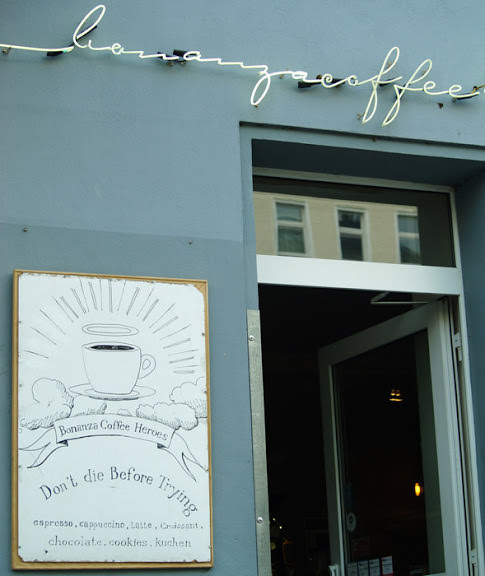 bonanzacoffee
Bonanza Coffee Heroes
Don't die Before Trying
espresso, cappuccino, Latte, Croissant,
chocolate. cookies. kuchen